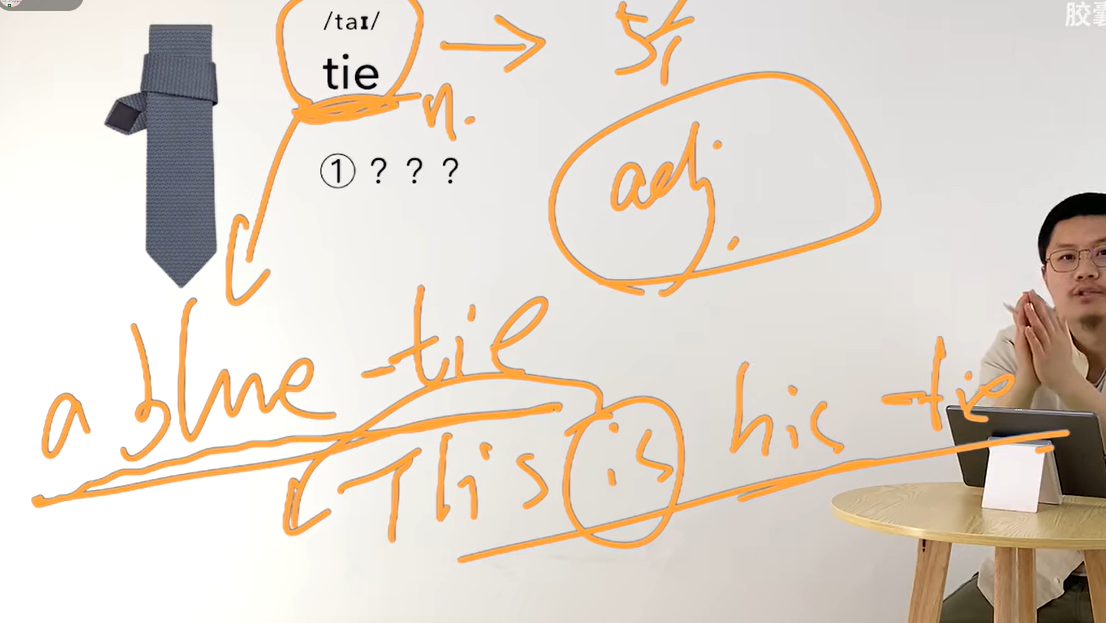 胶囊
/taɪ/
tie
n.
① ? ? ?
adj.
a blue tie
This is his tie